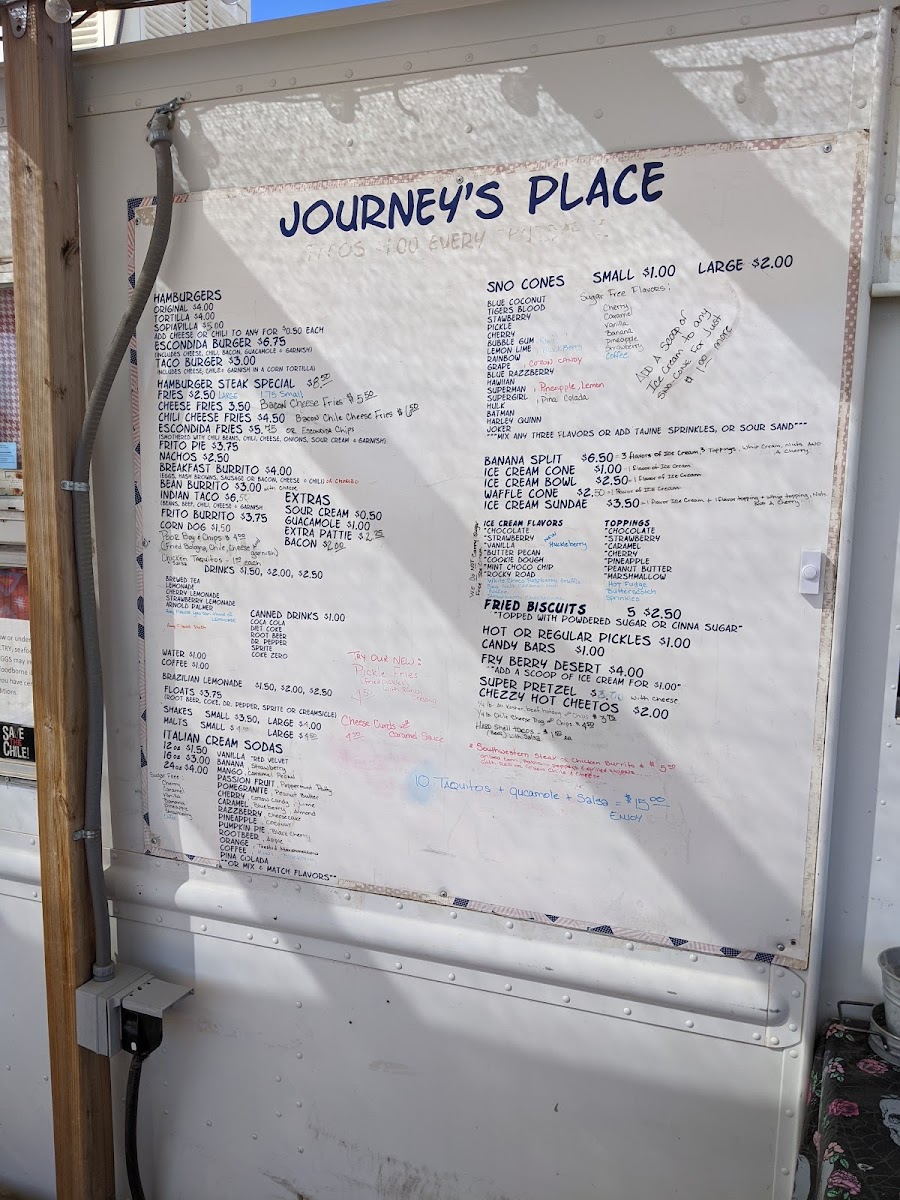 JOURNEY'S PLACE
HAMBURGERS
ORIGINAL $4.00
TORTILLA $4.00
SOPIAPILLA $5.00
ADD CHEESE OR CHILI TO ANY FOR $0.50 EACH
ESCONDIDA BURGER $6.75
(INCLUDES CHEESE, CHILI, BACON, GUACAMOLE & GARNISH)
TACO BURGER $3.00
(INCLUDES CHEESE, CHILE & GARNISH IN A CORN TORTILLA)
HAMBURGER STEAK SPECIAL $8.50
FRIES $2.50 LARGE 1.75 Small
CHEESE FRIES 3.50 Bacon Cheese Fries $5.50
CHILI CHEESE FRIES $4.50 Bacon Chile Cheese Fries
ESCONDIDA FRIES or Escondida Chips
(SMOTHERED WITH CHILI BEANS, CHILI, CHEESE, ONIONS, SOUR CREAM & GARNISH)
FRITO PIE $3.75
NACHOS $2.50
BREAKFAST BURRITO $4.00
(EGGS, HASH BROWNS, SAUSAGE OR BACON, CHEESE & CHILI) or CHORIZO
BEAN BURRITO $3.00 with cheese
INDIAN TACO
(BEANS, BEEF, CHILI, CHEESE & GARNISH
FRITO BURRITO $3.75
CORN DOG $1.50
Poor Boy & Chips
(Fried Bologna, Chile, Cheese garnish)
Chicken Taquitos - each
+ salsa
EXTRAS
SOUR CREAM $0.50
GUACAMOLE $1.00
EXTRA PATTIE
BACON $2.00
DRINKS $1.50, $2.00, $2.50
BREWED TEA
LEMONADE
CHERRY LEMONADE
STRAWBERRY LEMONADE
ARNOLD PALMER
CANNED DRINKS $1.00
COCA COLA
DIET COKE
ROOT BEER
DR. PEPPER
SPRITE
COKE ZERO
WATER $1.00
COFFEE $1.00
BRAZILIAN LEMONADE $1.50, $2.00, $2.50
FLOATS $3.75
(ROOT BEER, COKE, DR. PEPPER, SPRITE OR CREAMSICLE)
SHAKES SMALL $3.50, LARGE $4.00
MALTS SMALL LARGE
TRY OUR NEW:
Pickle Fries
Cheese Curds
Caramel Sauce
ITALIAN CREAM SODAS
12 oz $1.50
16 oz $3.00
24 oz $4.00
Sugar Free
Cherry
Caramel
Vanilla
Banana
VANILLA RED VELVET
BANANA Strawberry
MANGO Caramel Pecan
PASSION FRUIT Peppermint Patty
POMEGRANITE Peanut Butter
CHERRY Cotton Candy Lime
CARAMEL Blueberry Almond
RAZZBERRY Cheesecake
PINEAPPLE Coconut
PUMPKIN PIE Black Cherry
ROOTBEER Apple
ORANGE Toasted Marshmallow
COFFEE
PINA COLADA
**OR MIX & MATCH FLAVORS**
SNO CONES SMALL $1.00 LARGE $2.00
BLUE COCONUT
TIGERS BLOOD
STAWBERRY
PICKLE
CHERRY
BUBBLE GUM
LEMON LIME
RAINBOW
GRAPE , COTTON CANDY
BLUE RAZZBERRY
HAWIIAN
SUPERMAN , Pineapple, Lemon
SUPERGIRL , Pina Colada
HULK
BATMAN
HARLEY QUINN
JOKER
Sugar Free Flavors:
Cherry
Caramel
Vanilla
Banana
Pineapple
Strawberry
Coffee
ADD A SCOOP OF
Ice Cream to any
Sno-Cone For Just
$1.00 more
***MIX ANY THREE FLAVORS OR ADD TAJINE SPRINKLES, OR SOUR SAND***
BANANA SPLIT $6.50 = 3 flavors of Ice Cream 3 Toppings, Whip Cream, nuts AND
A Cherry
ICE CREAM CONE $1.00 - 1 flavor of Ice Cream
ICE CREAM BOWL $2.50 - 1 flavor of Ice Cream
WAFFLE CONE $2.50 - 1 flavor of Ice Cream
ICE CREAM SUNDAE $3.50 - 1 flavor Ice Cream + 1 flavor topping + whip topping, Nuts
& Cherry
ICE CREAM FLAVORS
*CHOCOLATE
*STRAWBERRY
*VANILLA
*BUTTER PECAN
*COOKIE DOUGH
*MINT CHOCO CHIP
*ROCKY ROAD
White Choco Raspberry truffle
NEW
Huckleberry
TOPPINGS
*CHOCOLATE
*STRAWBERRY
*CARAMEL
*CHERRY
*PINEAPPLE
*PEANUT BUTTER
*MARSHMALLOW
Hot Fudge
Butterscotch
Sprinkles
FRIED BISCUITS 5 $2.50
*TOPPED WITH POWDERED SUGAR OR CINNA SUGAR*
HOT OR REGULAR PICKLES $1.00
CANDY BARS $1.00
FRY BERRY DESERT $4.00
**ADD A SCOOP OF ICE CREAM FOR $1.00**
SUPER PRETZEL with cheese
CHEZZY HOT CHEETOS $2.00
1/4 lb. All Kosher beef hotdog & Chips
1/4 lb Chile Cheese Dog & Chips
Hard Shell tacos
(Beef) with Salsa
* Southwestern Steak or Chicken Burrito
10 TAQUITOS + guacamole + Salsa = $15.00
ENJOY
SAVE
THE
CHILE!